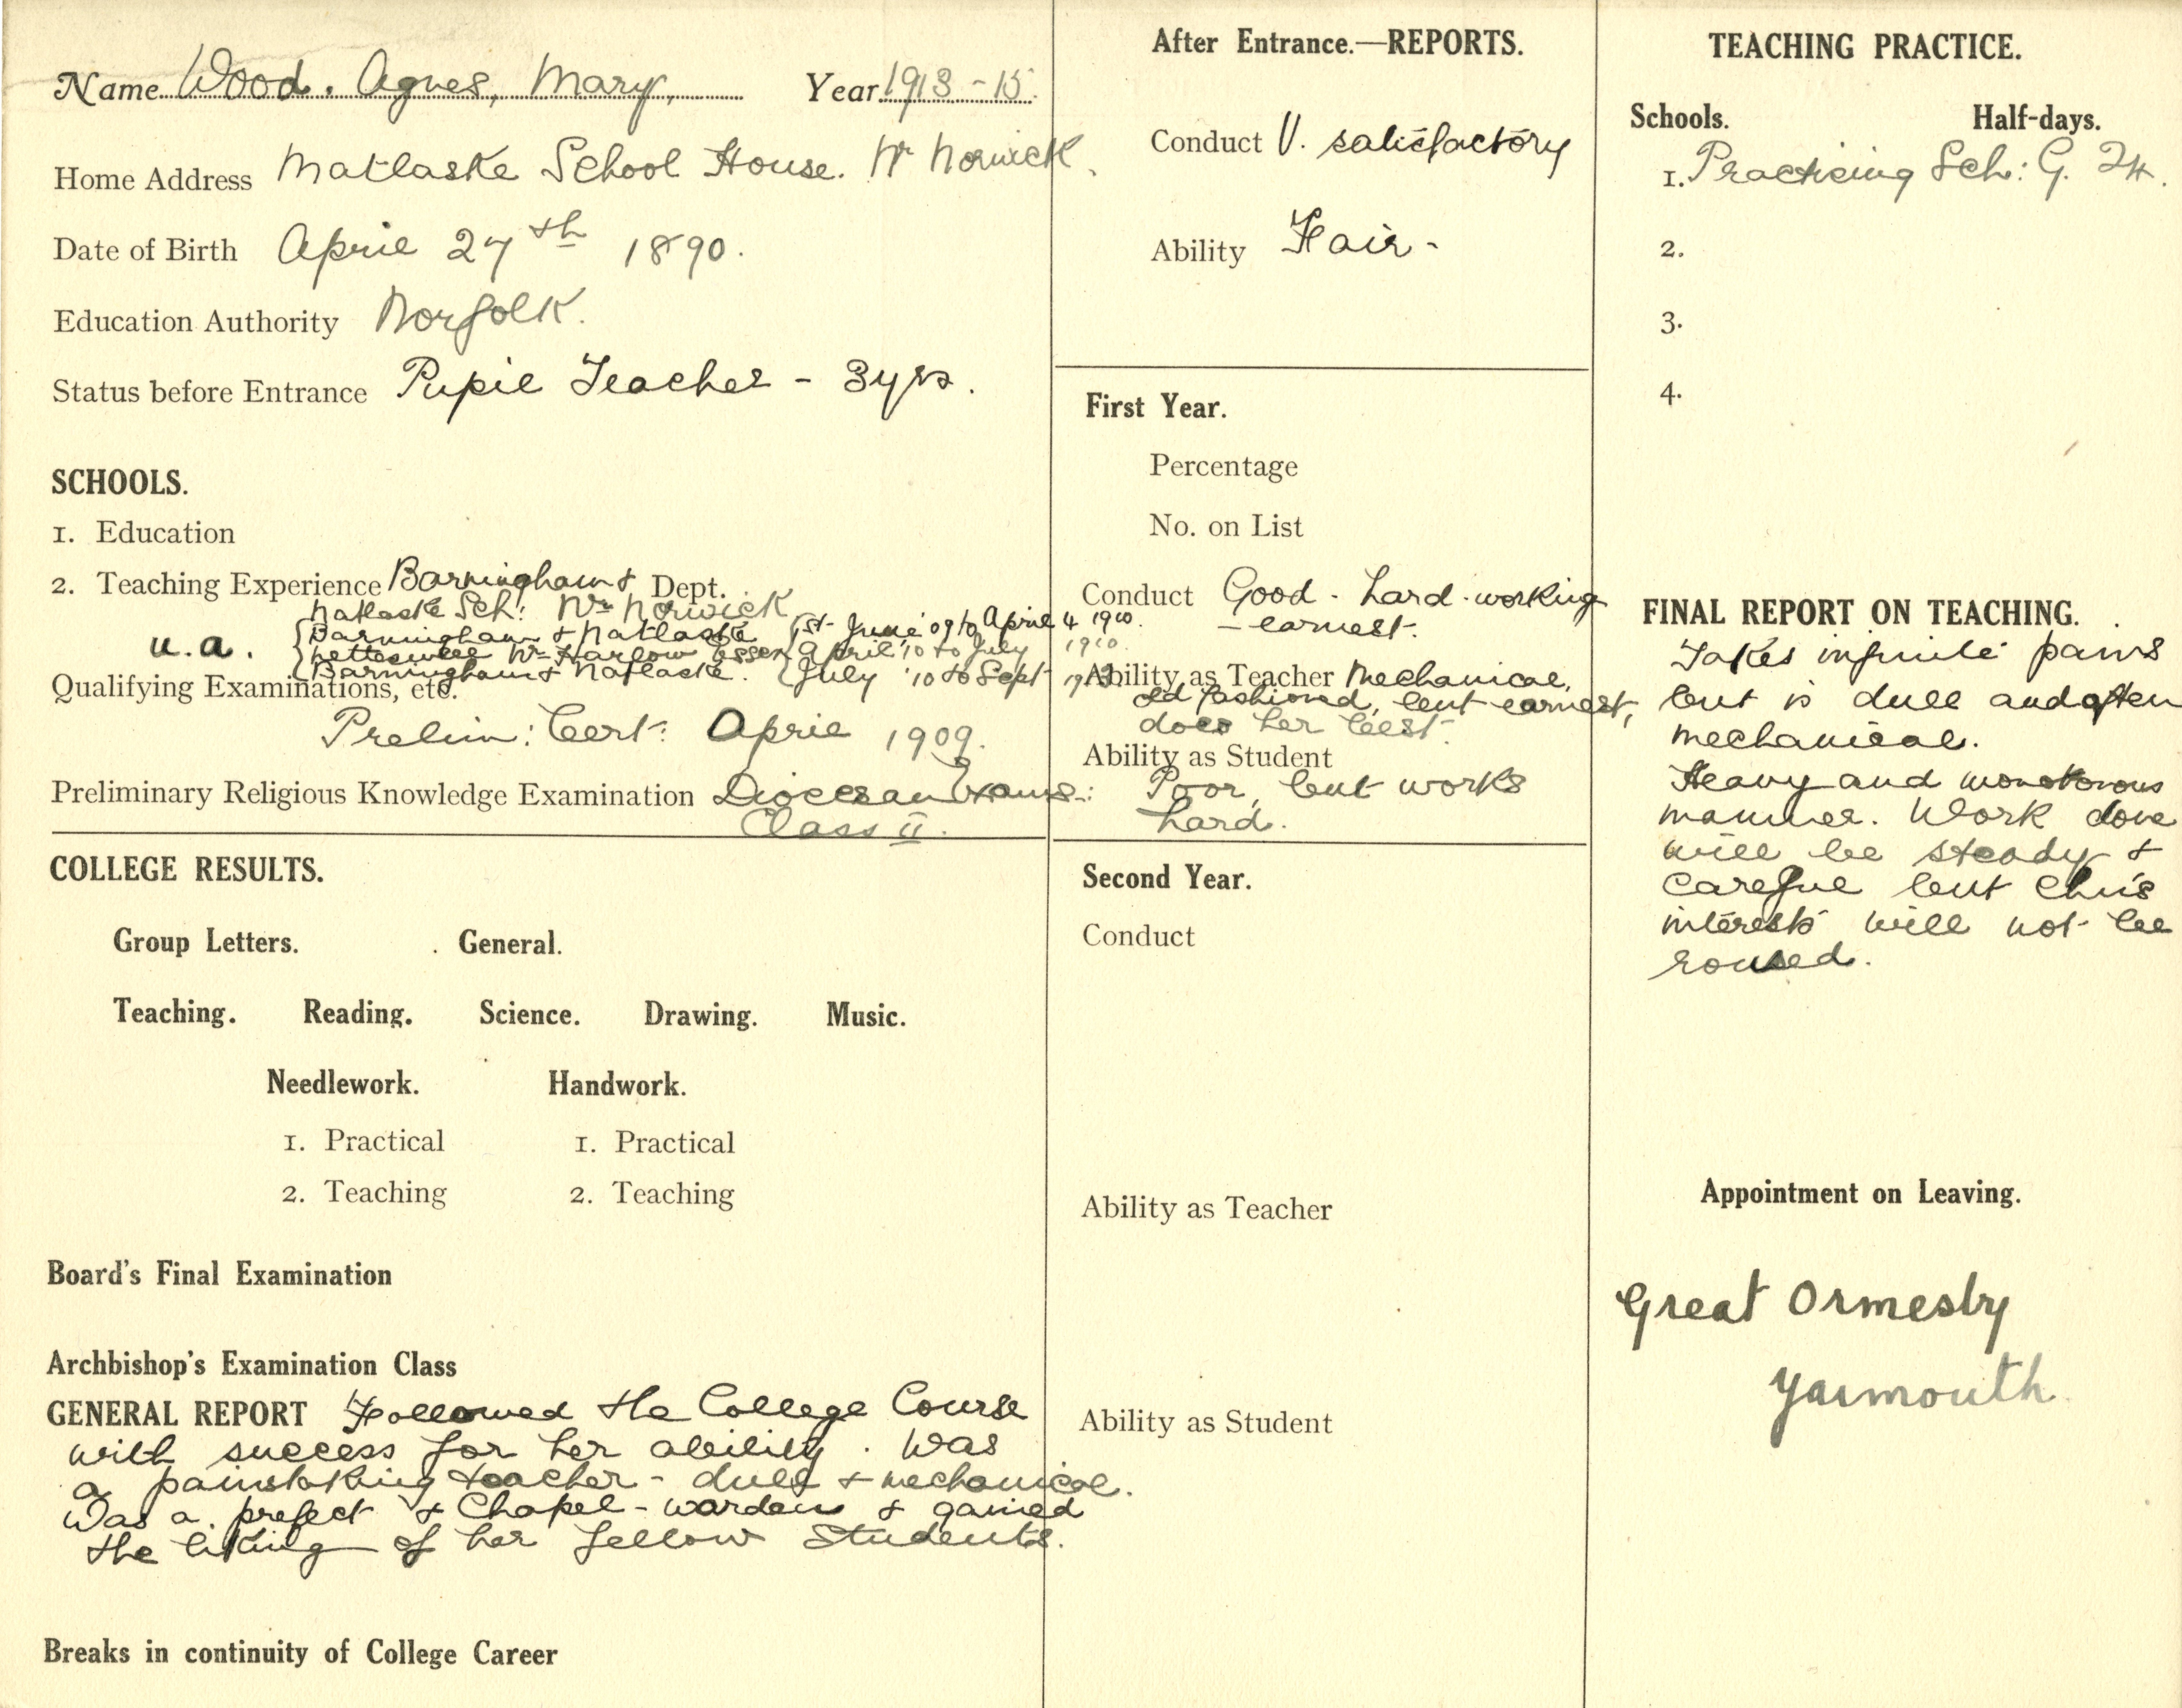 Name Wood. Agnes, Mary, Year 1913 - 15.
Home Address Matlaske School House. Nr Norwich.
Date of Birth April 27th 1890.
Education Authority Norfolk.
Status before Entrance Pupil Teacher - 3 yrs.
SCHOOLS.
1. Education
2. Teaching Experience Barningham & Dept.
Matlaske Sch: Nr Norwich
u.a. Barningham & Matlaske 1st June '09 to April 4 1910.
Nr Harlow Essex April '10 to July 1910.
Barningham & Matlaske. July '10 to Sept
Qualifying Examinations, etc.
Prelim: Cert: April 1909.
Preliminary Religious Knowledge Examination Diocesan Exams:
Class II.
COLLEGE RESULTS.
Group Letters. General.
Teaching. Reading. Science. Drawing. Music.
Needlework. Handwork.
1. Practical 1. Practical
2. Teaching 2. Teaching
Board's Final Examination
Archbishop's Examination Class
GENERAL REPORT Followed the College Course
with success for her ability. Was
a painstaking teacher - dull & mechanical.
Was a prefect & Chapel-warden & gained
the liking of her fellow students.
Breaks in continuity of College Career
After Entrance.—REPORTS.
Conduct V. satisfactory
Ability Fair -
First Year.
Percentage
No. on List
Conduct Good - hard-working
- earnest.
Ability as Teacher Mechanical,
old fashioned, but earnest,
does her best.
Ability as Student
Poor, but works
hard.
Second Year.
Conduct
Ability as Teacher
Ability as Student
TEACHING PRACTICE.
Schools. Half-days.
1. Practising Sch: G. 24.
2.
3.
4.
FINAL REPORT ON TEACHING.
Takes infinite pains
but is dull and often
mechanical.
Heavy and monotonous
manner. Work done
will be steady &
careful but chn's
interests will not be
roused.
Appointment on Leaving.
Great Ormesby
Yarmouth